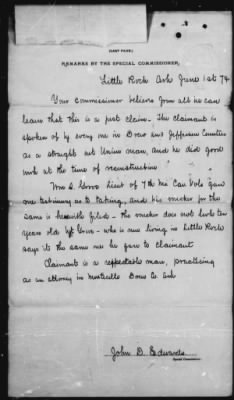 (LAST PAGE.)
REMARKS BY THE SPECIAL COMMISSIONER.
Little Rock Ark June 1st 74
Your Commissioner believes from all he can
learn that this is a just claim. The claimant is
spoken of by every one in Drew and Jefferson Counties
as a straight out Union man, and he did good
work at the time of reconstruction
Wm S. Lieut of 7th Mo Cav Vols gave
me testimony as to taking, and his voucher for the
same is herewith filed. The voucher does not look ten
years old but who is now living in Little Rock
says its the same one he gave to Claimant
Claimant is a respectable man, practicing
as an attorney in Monticello Drew Co. Ark
John D. Edwards
Special Commissioner.